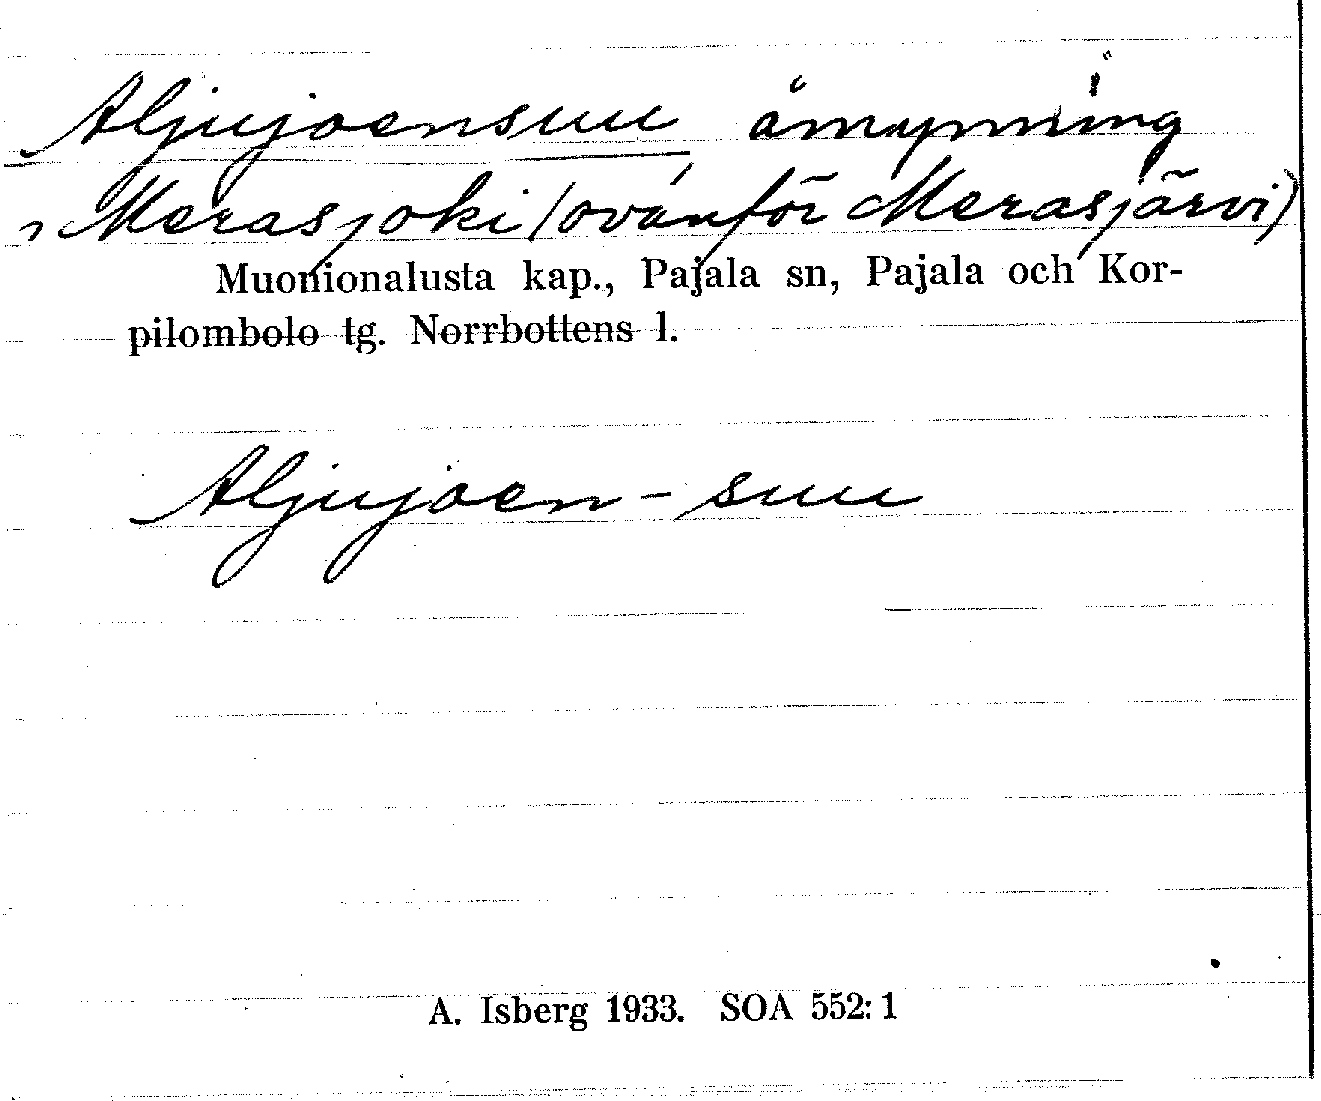 Aljujoensuu åmynning
i Merasjoki (ovanför Merasjärvi)
Muonionalusta kap., Pajala sn, Pajala och Kor-
pilombolo tg. Norrbottens l.
Aljujoen - suu
A. Isberg 1933. SOA 552:1